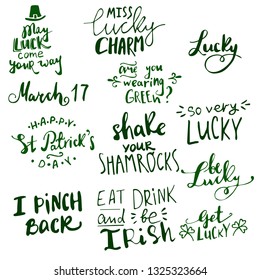 May
LUCK
come
YOUR WAY
MISS
lucky
CHARM
Lucky
are you
WEARING
GREEN?
March 17
SO VERY
LUCKY
HAPPY
St Patrick's
DAY
shake
YOUR
SHAMROCKS
be
Lucky
I PINCH
BACK
EAT DRINK
and be
IRish
Get
LUCKY
shutterstock.com · 1325323664